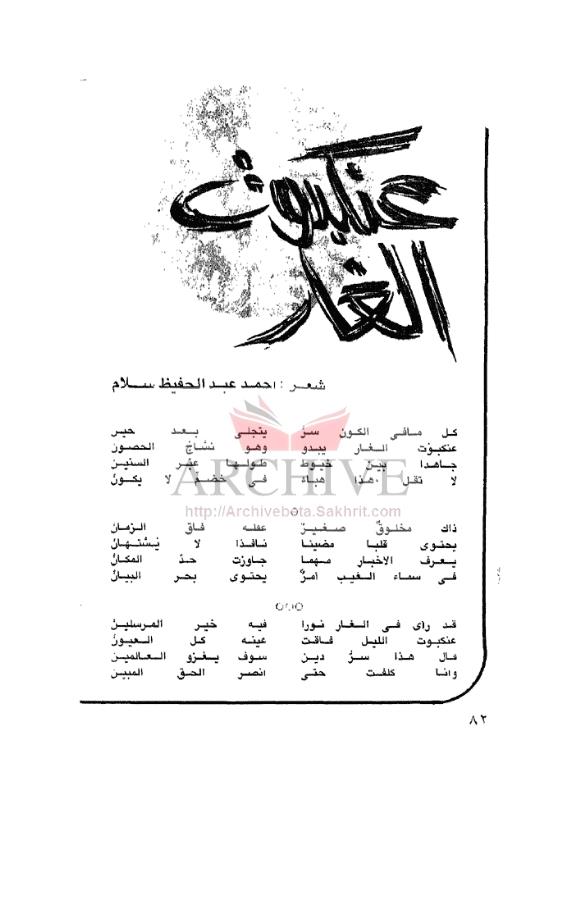 عنكبوت
الغار
شعر : احمد عبد الحفيظ سلام
كل مافى الكون سرٌ يتجلى بعد حين
عنكبوت الغار يبدو وهو نساج الحصون
جاهدا بين خيوط طولها عبْر السنين
لا تقل هذا هباء فى خضم لا يكون
ARCHIVE
http://Archivebeta.Sakhrit.com
ذاك مخلوقٌ صغيرٌ عقله فاق الزمان
يحتوى قلبا مضيئا نافذا لا يُسْتهانْ
يعرف الاخبار مهما جاوزت حدّ المكانْ
فى سماء الغيب أمرٌ يحتوى بحر البيانْ
قد رأى فى الغار نورا فيه خير المرسلينْ
عنكبوت الليل فاقت عينه كل العيونْ
قال هذا سرُّ دين سوف يغزو العالمين
وانا كلفت حتى انصر الحق المبين
٨٢